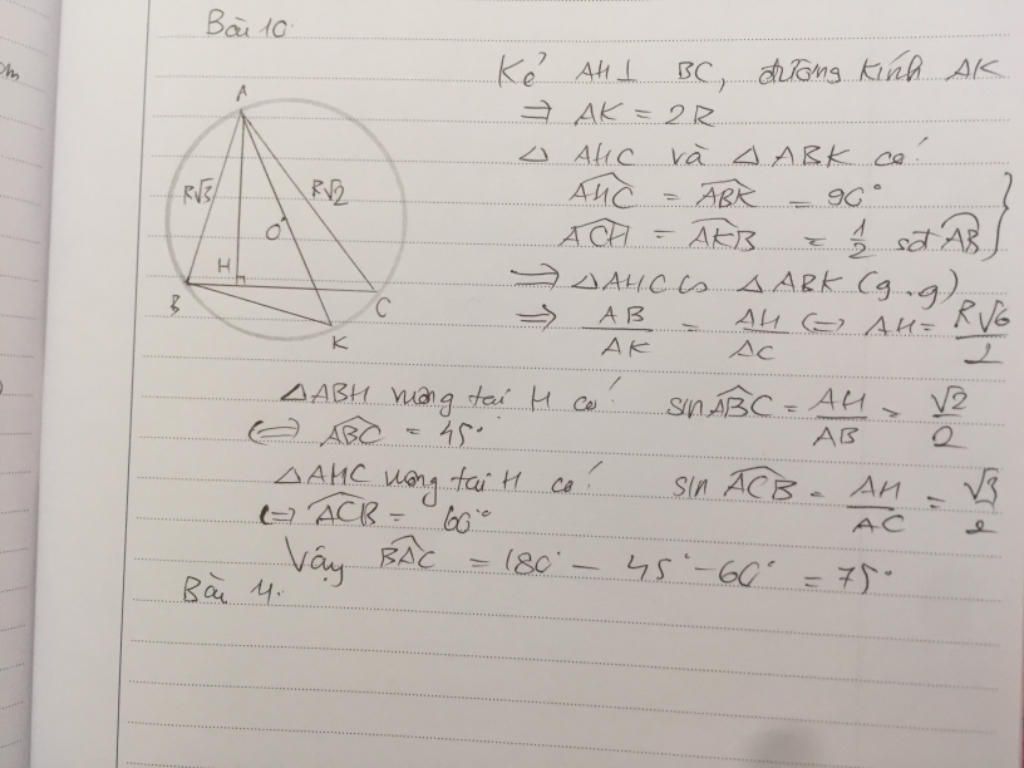 Bài 10.
Kẻ AH ⊥ BC, đường kính AK
⇒ AK = 2R
△ AHC và △ ABK có:
\widehat{AHC} = \widehat{ABK} = 90°
\widehat{ACH} = \widehat{AKB} = 1/2 sđ \overset{\frown}{AB}
⇒ △AHC ∽ △ABK (g.g)
⇒ AB/AK = AH/AC ⇔ AH = R√6/2
A
R√3
R√2
O
H
B
C
K
△ABH vuông tại H có: sin \widehat{ABC} = AH/AB = √2/2
⇔ \widehat{ABC} = 45°
△AHC vuông tại H có: sin \widehat{ACB} = AH/AC = √3/2
⇔ \widehat{ACB} = 60°
Vậy \widehat{BAC} = 180° − 45° − 60° = 75°
Bài 11.